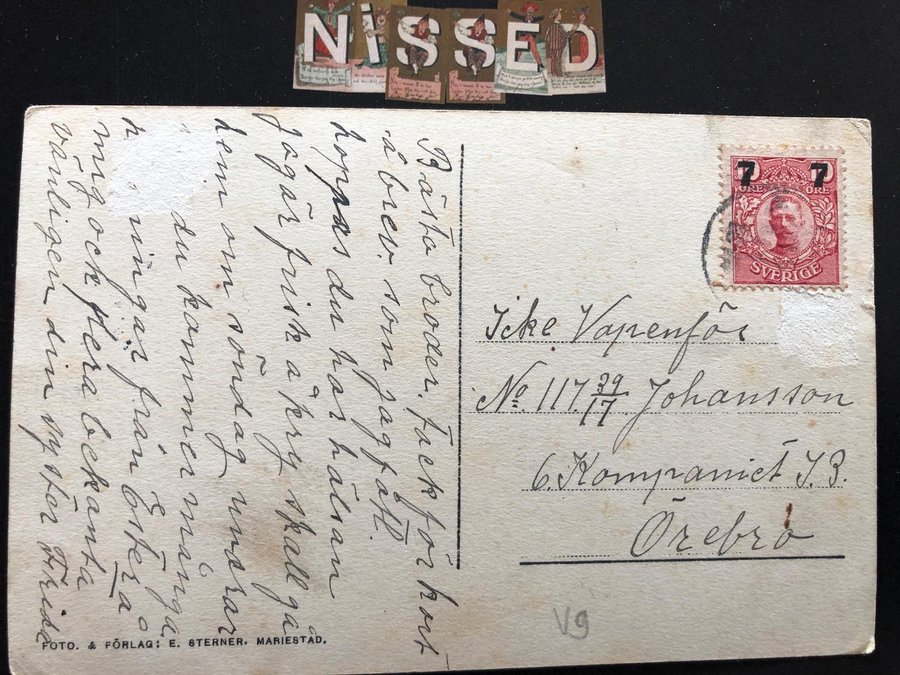 NISSED
Bästa broder. Tack för kort
å brev som jag fått.
hoppas du har hälsan
jag är frisk å kry skall gå
hem om söndag undrar
du kommer många
ningar från Ester å
mig ock flera bekanta
vänligen din syster Frida
7 7
ÖRE ÖRE
SVERIGE
Icke Vapenför
No. 117 39/17 Johansson
6. Kompaniet I 3.
Örebro
FOTO. & FÖRLAG: E. STERNER, MARIESTAD.
V9